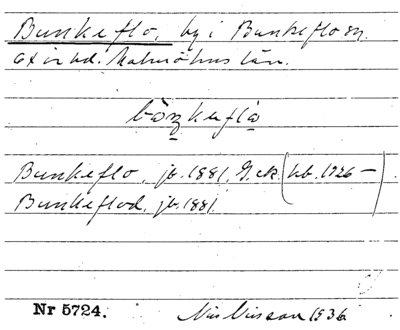 Bunkeflo, by i Bunkeflo sn.
Oxie hd. Malmöhus län.
Bunkeflo, jb. 1881, G.ek. (hb. 1926 –)
Bunkeflod, jb. 1881.
Nr 5724. Nils Nilsson 1936